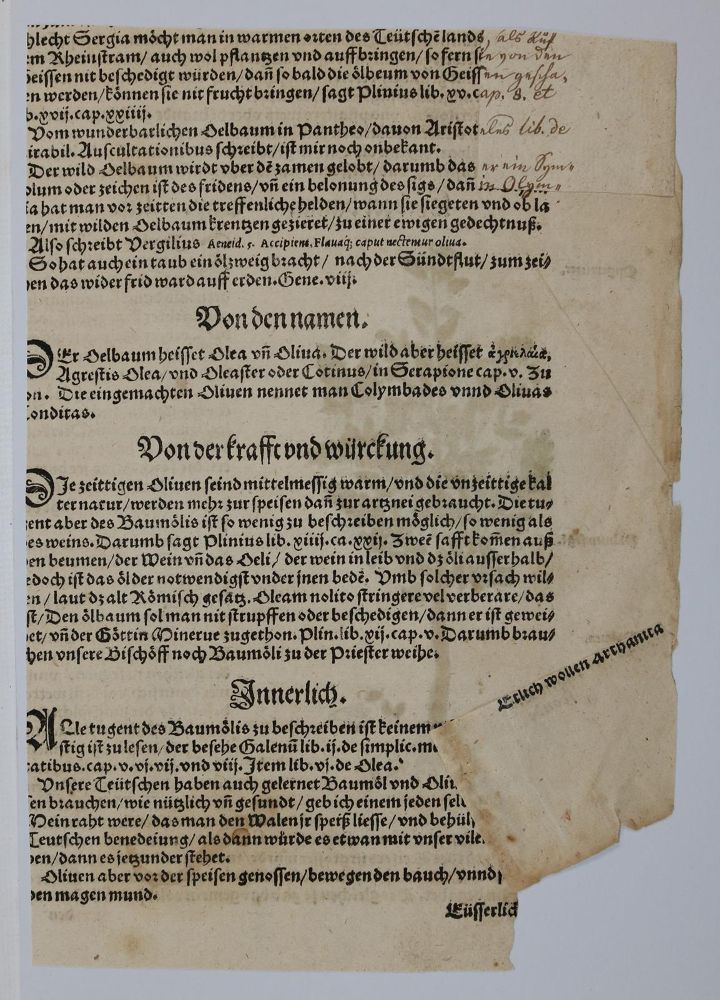 hlecht Sergia möcht man in warmen orten des Teütschē lands, als auff
em Rheinstram/ auch wol pflantzen vnd auffbringen/ so fern sie von den
Geissen nit beschedigt würden/ dañ so bald die ölbeum von Geissen gescha-
en werden/ können sie nit frucht bringen/ sagt Plinius lib. xv. cap. 8. et
b. xvij. cap. xxiiij.
Vom wunderbarlichen Oelbaum in Pantheo/ dauon Aristoteles lib. de
irabil. Auscultationibus schreibt/ ist mir noch onbekant.
Der wild Oelbaum wirdt vber dē zamen gelobt/ darumb das er ein Sym-
olum oder zeichen ist des fridens/ vñ ein belonung des sigs/ dañ in Olym-
ia hat man vor zeitten die treffenliche helden/ wann sie siegeten vnd ob la
en/ mit wilden Oelbaum krentzen gezieret/ zu einer ewigen gedechtnuß.
Also schreibt Vergilius Aeneid. 5. Accipient. Flauaq; caput nectemur oliua.
So hat auch ein taub ein ölzweig bracht/ nach der Sündtflut/ zum zei-
hen das wider frid ward auff erden. Gene. viij.
Von den namen.
DEr Oelbaum heisset Olea vñ Oliua. Der wild aber heisset
Agrestis Olea/ vnd Oleaster oder Cotinus/ in Serapione cap. v. Zu
on. Die eingemachten Oliuen nennet man Colymbades vnnd Oliuas
onditas.
Von der krafft vnd würckung.
DIe zeittigen Oliuen seind mittelmessig warm/ vnd die vnzeittige kal
ter natur/ werden mehr zur speisen dañ zur artznei gebraucht. Die tu-
ent aber des Baumölis ist so wenig zu beschreiben möglich/ so wenig als
es weins. Darumb sagt Plinius lib. xiiij. ca. xxij. Zweē safft kom̄en auß
en beumen/ der Wein vñ das Oeli/ der wein in leib vnd dz öli ausserhalb/
edoch ist das öl der notwendigst vnder jnen bedē. Vmb solcher vrsach wil-
en/ laut dz alt Römisch gesatz. Oleam nolito stringere vel verberare/ das
st/ Den ölbaum sol man nit strupffen oder beschedigen/ dann er ist gewei-
et/ vñ der Göttin Minerue zugethon. Plin. lib. xij. cap. v. Darumb brau-
hen vnsere Bischöff noch Baumöli zu der Priester weihe.
Etlich wollen Arthanita
Innerlich.
ALle tugent des Baumölis zu beschreiben ist keinem
stig ist zu lesen/ der besehe Galenū lib. ij. de simplic. m
catibus. cap. v. vj. vij. vnd viij. Item lib. vj. de Olea.
Vnsere Teütschen haben auch gelernet Baumöl vnd Oliu
en brauchen/ wie nützlich vñ gesundt/ geb ich einem jeden sel
Mein raht were/ das man den Walen jr speiß liesse/ vnd behül
Teutschen benedeiung/ als dann würde es etwan mit vnser vile
en/ dann es jetzunder stehet.
Oliuen aber vor der speisen genossen/ bewegen den bauch/ vnnd
den magen mund.
Eüsserlich